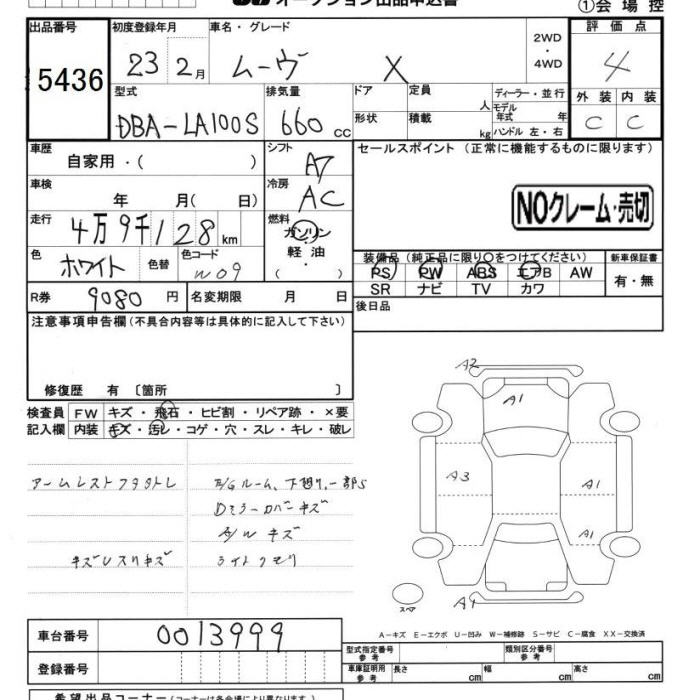 オークション出品申込書
①会場控
出品番号
5436
初度登録年月
23 2月
車名・グレード
ムーヴ X
2WD
・
4WD
評価点
4
型式
DBA-LA100S
排気量
660 cc
ドア
定員
人
ディーラー・並行
モデル
年式 年
形状
積載
kg
ハンドル 左・右
外装 内装
C C
車歴
自家用・( )
シフト
A7
セールスポイント (正常に機能するものに限ります)
車検
年 月( 日)
冷房
AC
NOクレーム・売切
走行
4万9千128km
燃料
ガソリン
・
軽油
( )
色
ホワイト
色替
色コード
W09
装備品 (純正品に限り○をつけてください)
新車保証書
PS PW ABS エアB AW
有・無
SR ナビ TV カワ
R券
9080 円
名変期限 月 日
後日品
注意事項申告欄(不具合内容等は具体的に記入して下さい)
修復歴 有 〔箇所 〕
検査員
記入欄
FW キズ・飛石・ヒビ割・リペア跡・×要
内装 キズ・汚レ・コゲ・穴・スレ・キレ・破レ
A2
A1
A3
A1
A1
A1
スペア
アームレストフタ
E/Gルーム、下廻り一部S
Dミラーカバーキズ
A/W キズ
キズUスリキズ
ライトクモリ
A-キズ E-エクボ U-凹み W-補修跡 S-サビ C-腐食 XX-交換済
車台番号
0013999
登録番号
型式指定番号
参考
類別区分番号
参考
車庫証明用
参考
長さ cm
幅 cm
高さ cm
希望出品コーナー(コーナーは各会場により異なります)